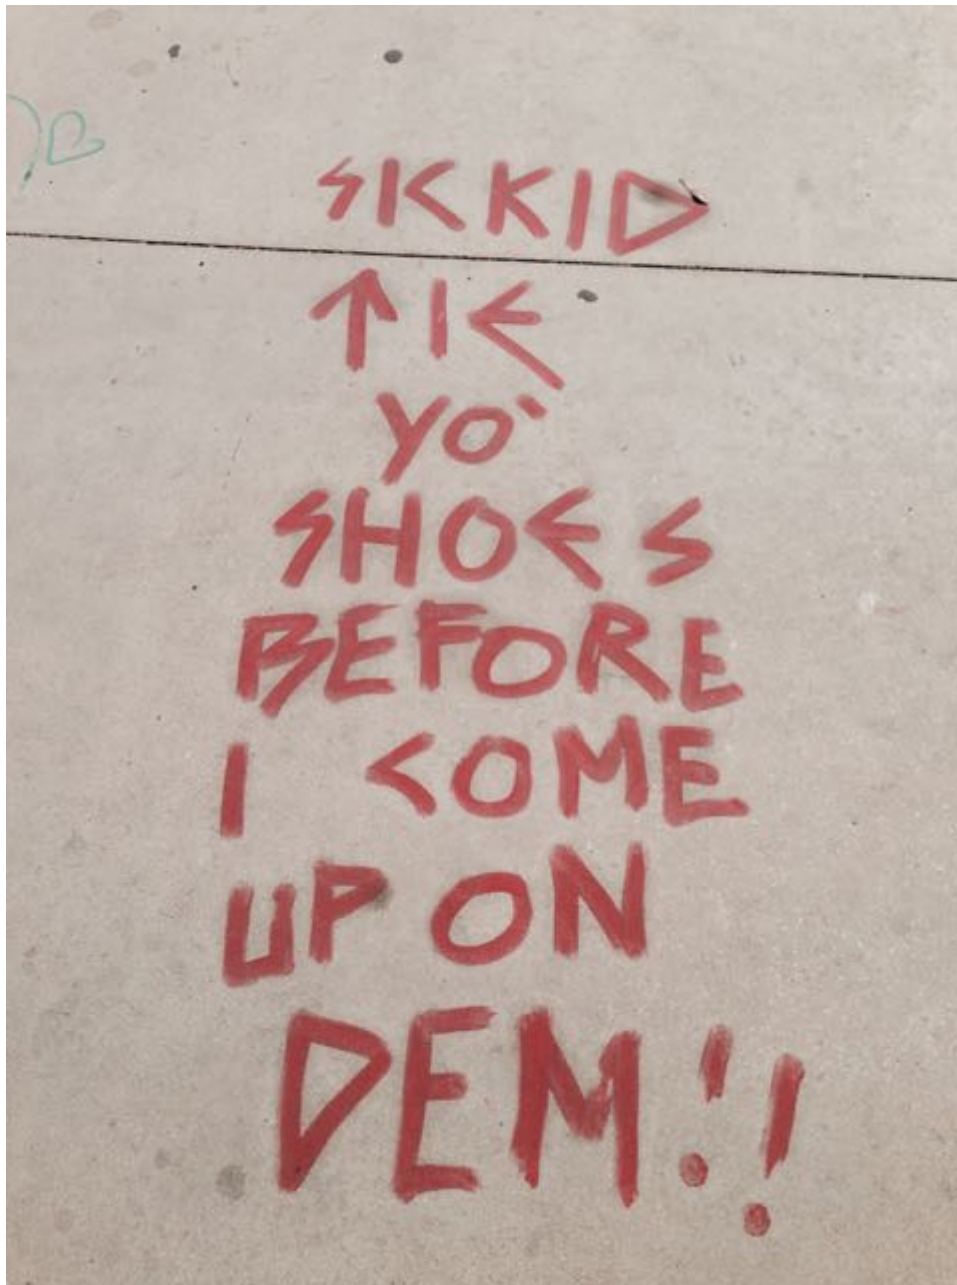 SICKKID
TIE
YO'
SHOES
BEFORE
I COME
UP ON
DEM!!